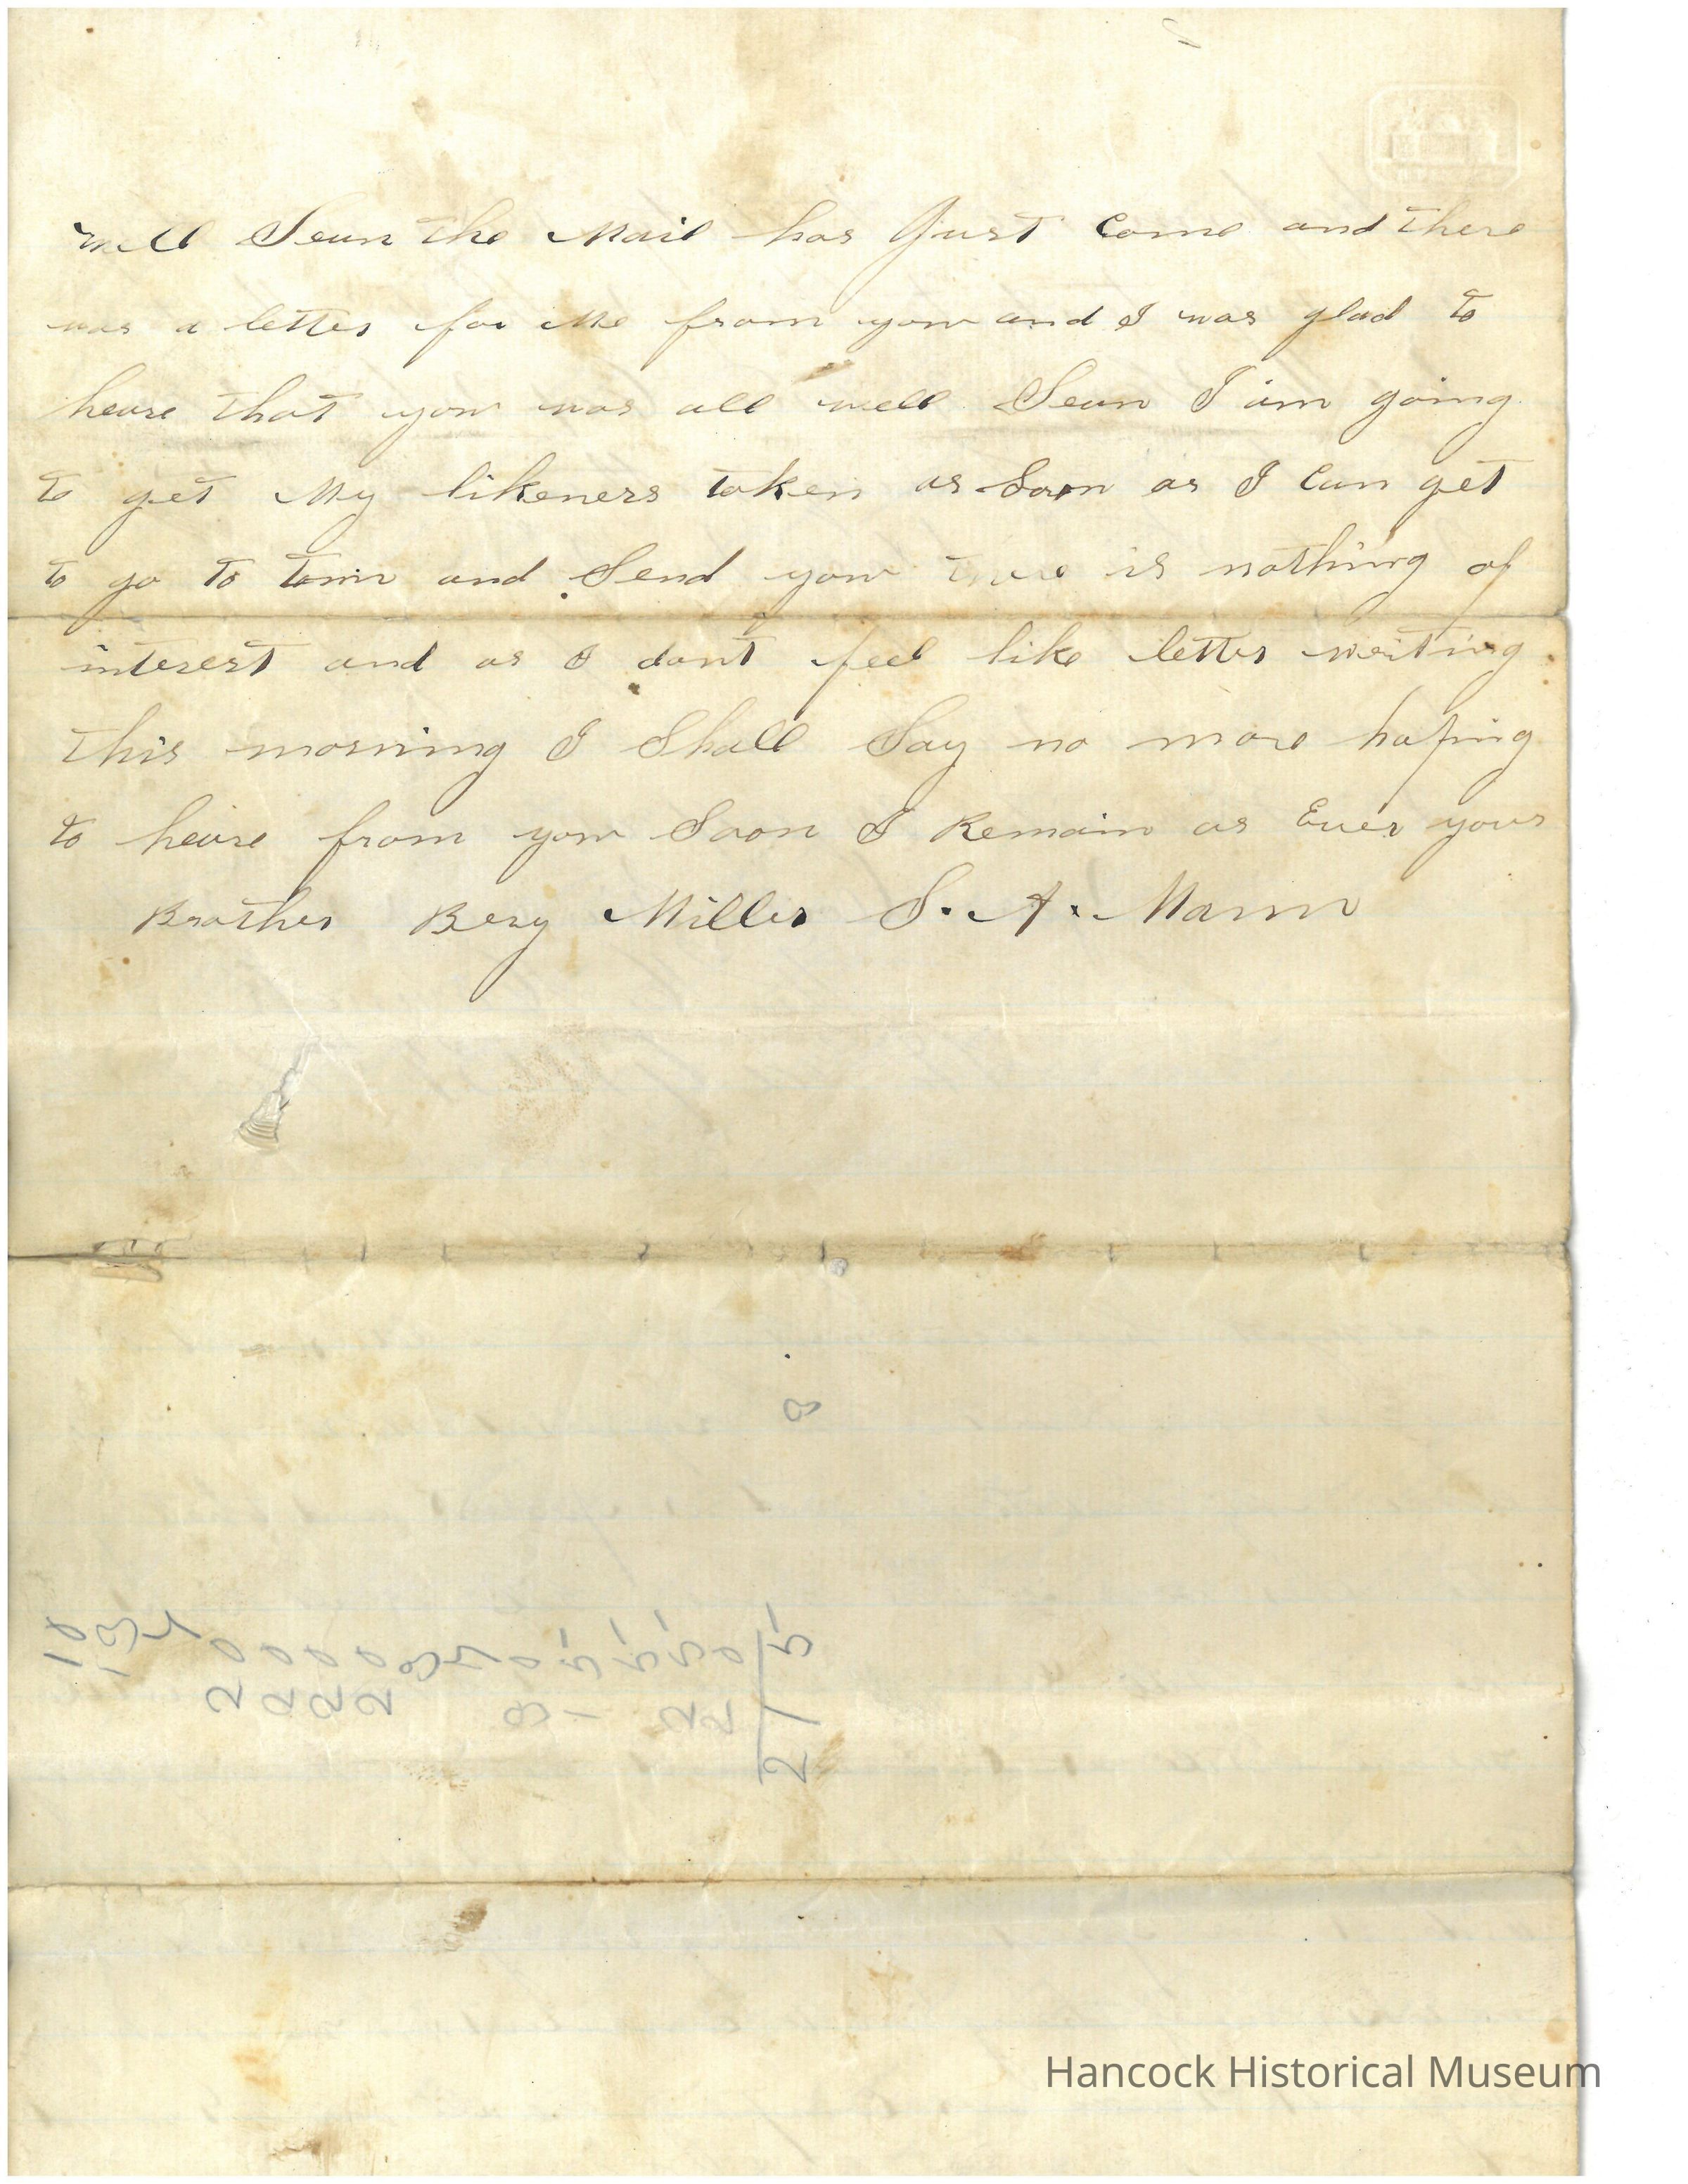 well Seun the Mail has Just Come and there
was a letter for Me from you and I was glad to
heare that you was all well Seun I am going
to get My likeness taken as Soon as I Can get
to go to town and Send you there is nothing of
interest and as I dont feel like letter writing
this morning I Shall Say no more hoping
to heare from you Soon I Remain as Ever your
Brother Beny Miller S. A. Mann
215
Hancock Historical Museum